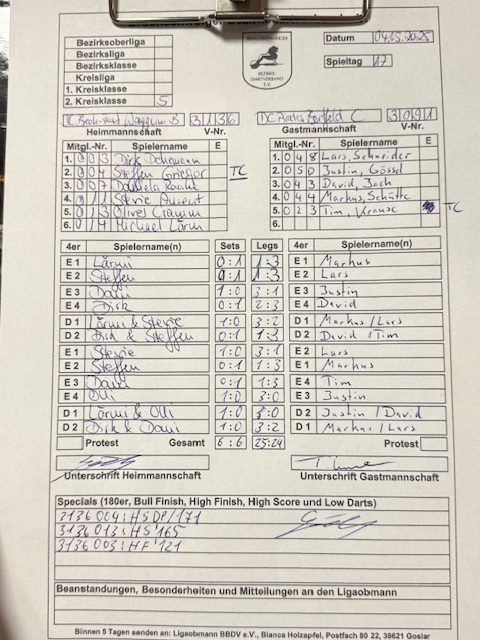 Bezirksoberliga
Bezirksliga
Bezirksklasse
Kreisliga
1. Kreisklasse
2. Kreisklasse 5
BRAUNSCHWEIGER
BEZIRKS-
DARTVERBAND
E.V.
Datum 04.05.2025
Spieltag 17
B 3136
DC C 3091
Heimmannschaft V-Nr.
Gastmannschaft V-Nr.
Mitgl.-Nr. Spielername E
1. 003 Dirk
2. 004 Steffen TC
3. 007 Daniela
4. 011 Stevie
5. 013 Oliver
6. 014 Michael
Mitgl.-Nr. Spielername E
1. 048 Lars, Schneider
2. 050 Justin, Gössel
3. 043 David, Bach
4. 044 Markus, Schütte
5. 023 Tim, Krause TC
6.
4er Spielername(n) Sets Legs 4er Spielername(n)
E 1 Lärmi 0:1 1:3 E 1 Markus
E 2 Steffen 0:1 1:3 E 2 Lars
E 3 Dani 1:0 3:1 E 3 Justin
E 4 Dirk 0:1 2:3 E 4 David
D 1 Lärmi & Stevie 1:0 3:2 D 1 Markus/Lars
D 2 Dirk & Steffen 0:1 1:3 D 2 David/Tim
E 1 Stevie 1:0 3:1 E 2 Lars
E 2 Steffen 0:1 1:3 E 1 Markus
E 3 Dani 0:1 1:3 E 4 Tim
E 4 Olli 1:0 3:0 E 3 Justin
D 1 Lärmi & Olli 1:0 3:0 D 2 Justin/David
D 2 Dirk & Dani 1:0 3:2 D 1 Markus/Lars
Protest Gesamt 6:6 25:24 Protest
Unterschrift Heimmannschaft
Unterschrift Gastmannschaft
Specials (180er, Bull Finish, High Finish, High Score und Low Darts)
3136 004: HS DP/171
3136 013: HS 165
3136 003: HF 121
Beanstandungen, Besonderheiten und Mitteilungen an den Ligaobmann
Binnen 5 Tagen senden an: Ligaobmann BBDV e.V., Bianca Holzapfel, Postfach 80 22, 38621 Goslar